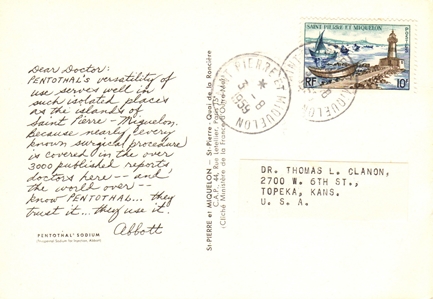 Dear Doctor:
PENTOTHAL's versatility of
use serves well in
such isolated places
as the islands of
Saint Pierre - Miquelon.
Because nearly every
known surgical procedure
is covered in the over
3000 published reports
doctors here -- and
the world over --
know PENTOTHAL... they
trust it... they use it.
Abbott
PENTOTHAL® SODIUM
(Thiopental Sodium for Injection, Abbott)
ST PIERRE et MIQUELON. _ St-Pierre - Quai de la Roncière
C.A.P., 44, Rue Letellier, Paris
(Cliché Ministère de la France d'Outre-Mer)
ST PIERRE ET MIQUELON
3-8
1959
SAINT PIERRE ET MIQUELON
POSTES
RF
10F
DR. THOMAS L. CLANON,
2700 W. 6TH ST.,
TOPEKA, KANS.
U. S. A.